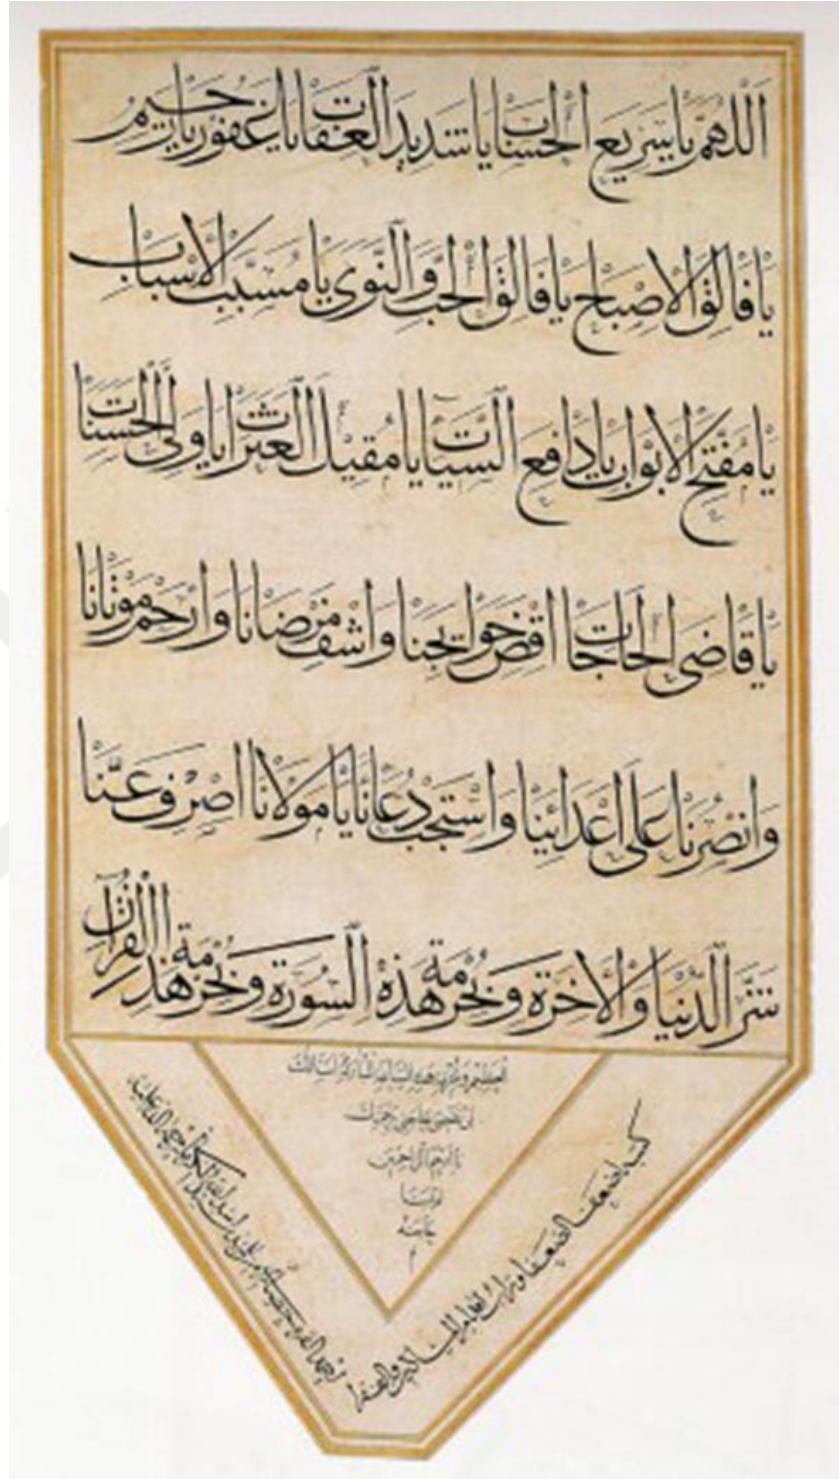 اَللّٰهُمَّ يَا سَرِيعَ الْحِسَابِ يَا شَدِيدَ الْعِقَابِ يَا غَفُورُ يَا رَحِيمُ
يَا فَالِقَ الْاِصْبَاحِ يَا فَالِقَ الْحَبِّ وَالنَّوٰى يَا مُسَبِّبَ الْاَسْبَابِ
يَا مُفَتِّحَ الْاَبْوَابِ يَا دَافِعَ السَّيِّئَاتِ يَا مُقِيلَ الْعَثَرَاتِ يَا وَلِىَّ الْحَسَنَاتِ
يَا قَاضِىَ الْحَاجَاتِ اقْضِ حَوَايِجَنَا وَاشْفِ مَرْضَانَا وَارْحَمْ مَوْتَانَا
وَانْصُرْنَا عَلٰى اَعْدَائِنَا وَاسْتَجِبْ دُعَانَا يَا مَوْلَانَا اصْرِفْ عَنَّا
شَرَّ الدُّنْيَا وَالْاٰخِرَةِ وَبِحُرْمَةِ هٰذِهِ السُّورَةِ وَبِحُرْمَةِ هٰذَا الْقُرْاٰنِ
العظيم وبحرمة هذه
ان تقضى حاجتى برحمتك
يا ارحم الراحمين
كتبه اضعف الضعفا وتراب اقدام المساكين والفقرا